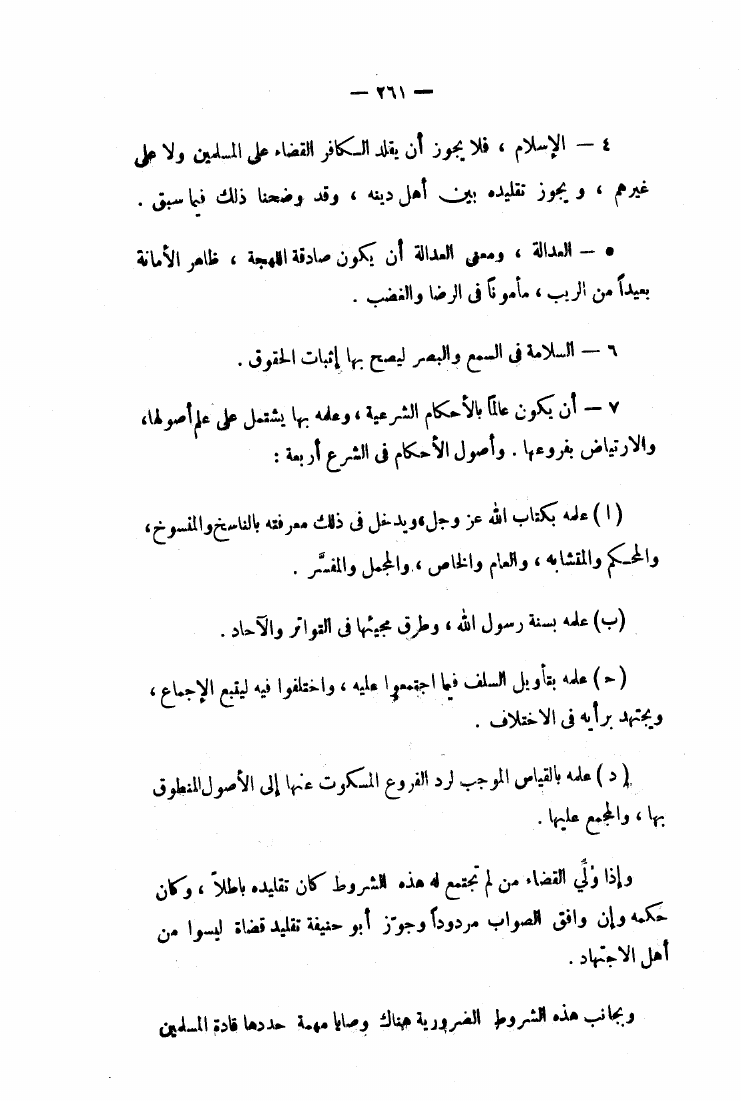 — ٢٦١ —
٤ — الإسلام ، فلا يجوز أن يقلد الكافر القضاء على المسلمين ولا على
غيرهم ، ويجوز تقليده بين أهل دينه ، وقد وضحنا ذلك فيما سبق .
٥ — العدالة ، ومعنى العدالة أن يكون صادقة اللهجة ، ظاهر الأمانة
بعيداً من الريب ، مأموناً فى الرضا والغضب .
٦ — السلامة فى السمع والبصر ليصح بها إثبات الحقوق .
٧ — أن يكون عالماً بالأحكام الشرعية ، وعلمه بها يشتمل على علم أصولها ،
والارتياض بفروعها . وأصول الأحكام فى الشرع أربعة :
(ا) علمه بكتاب الله عز وجل ، ويدخل فى ذلك معرفته بالناسخ والمنسوخ ،
والمحكم والمتشابه ، والعام والخاص ، والمجمل والمفسَّر .
(ب) علمه بسنة رسول الله ، وطرق مجيئها فى التواتر والآحاد .
(ح) علمه بتأويل السلف فيما اجتمعوا عليه ، واختلفوا فيه ليتبع الإجماع ،
ويجتهد برأيه فى الاختلاف .
(د) علمه بالقياس الموجب لرد الفروع المسكوت عنها إلى الأصول المنطوق
بها ، والمجمع عليها .
وإذا وُلِّي القضاء من لم تجتمع له هذه الشروط كان تقليده باطلاً ، وكان
حكمه وإن وافق الصواب مردوداً وجوّز أبو حنيفة تقليد قضاة ليسوا من
أهل الاجتهاد .
وبجانب هذه الشروط الضرورية هناك وصايا مهمة حددها قادة المسلمين